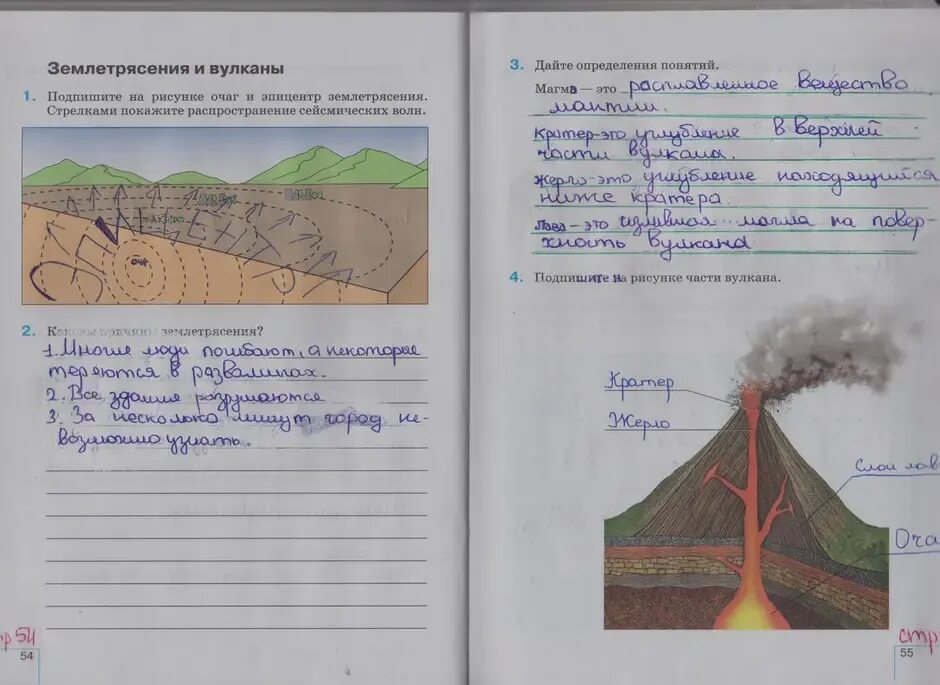 Землетрясения и вулканы
1. Подпишите на рисунке очаг и эпицентр землетрясения.
Стрелками покажите распространение сейсмических волн.
очаг
2. Каковы причины землетрясения?
1. Многие люди погибают, а некоторые
теряются в развалинах.
2. Все здания разрушаются
3. За несколько минут город не-
возможно узнать.
р 54
54
3. Дайте определения понятий.
Магма — это расплавленное вещество
мантии.
Кратер-это углубление в верхней
части вулкана.
Жерло-это углубление находящийся
ниже кратера.
Лава - это излившая магма на повер-
хность вулкана
4. Подпишите на рисунке части вулкана.
Кратер
Жерло
Слои лав
Оча
стр
55